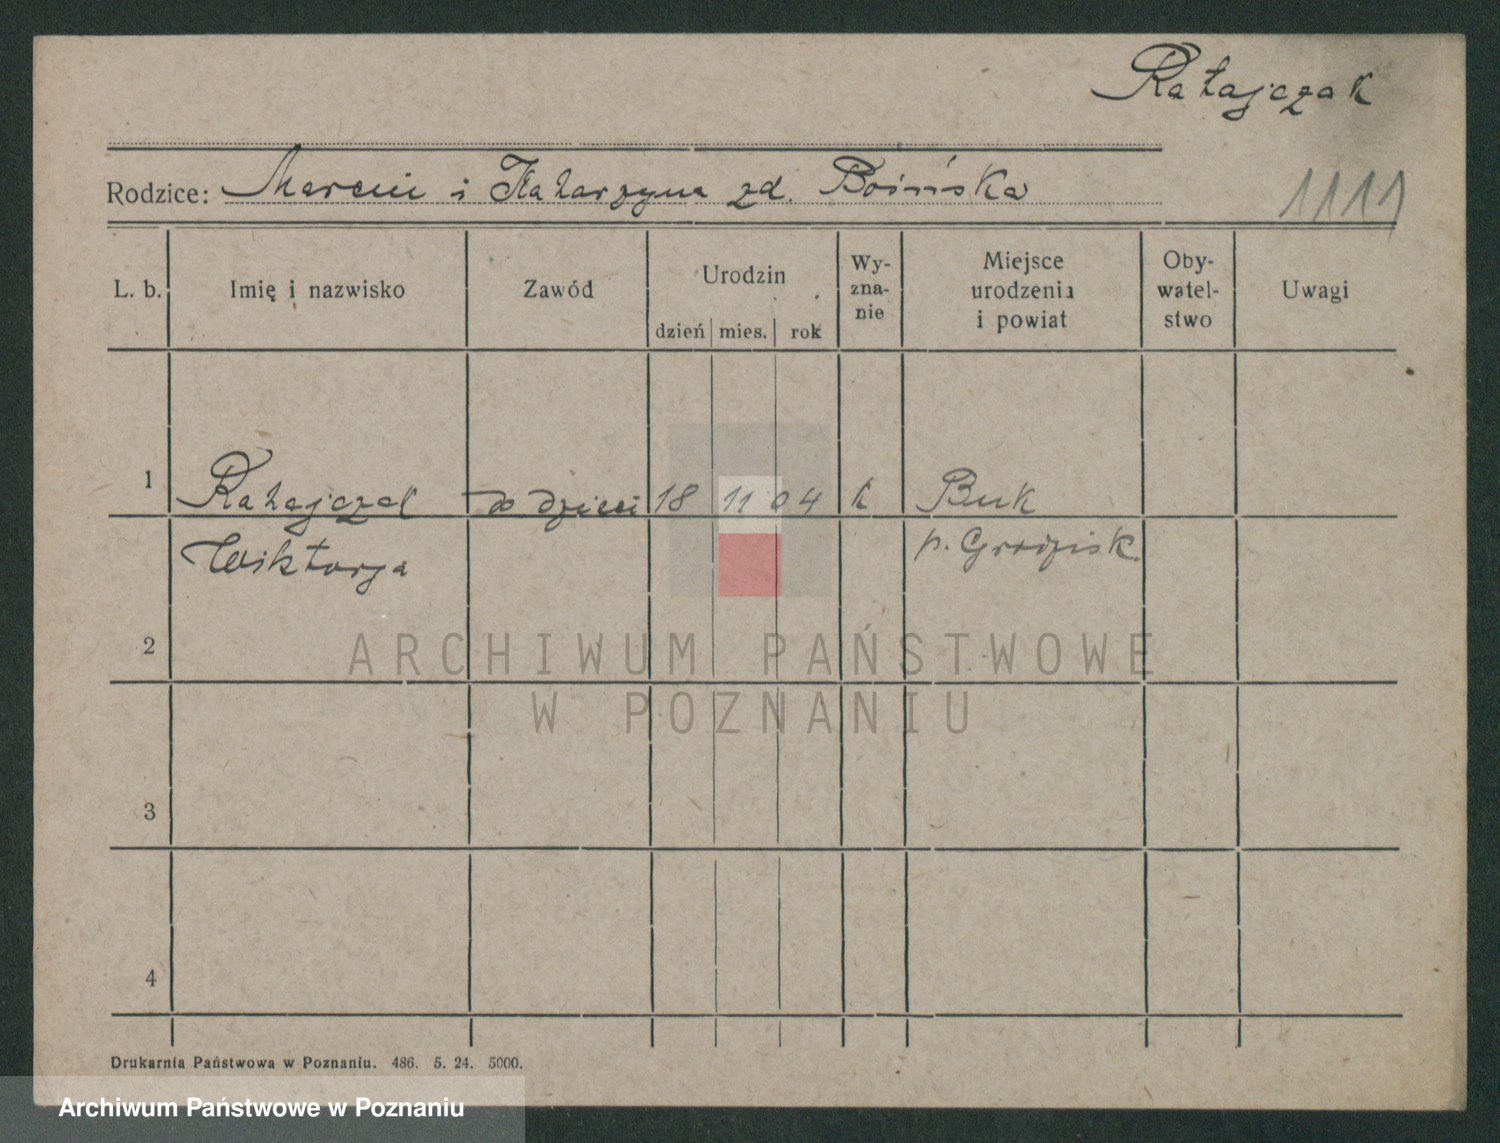 Ratajczak
Rodzice: Marcin i Katarzyna zd. Boińska
1111
L. b. Imię i nazwisko Zawód Urodzin Wy-zna-nie Miejsce urodzenia i powiat Oby-watel-stwo Uwagi
dzień mies. rok
1 Ratajczak do dzieci 18 11 04 k Buk
Wiktorja p. Grodzisk
2
ARCHIWUM PAŃSTWOWE
W POZNANIU
3
4
Drukarnia Państwowa w Poznaniu. 486. 5. 24. 5000.
Archiwum Państwowe w Poznaniu